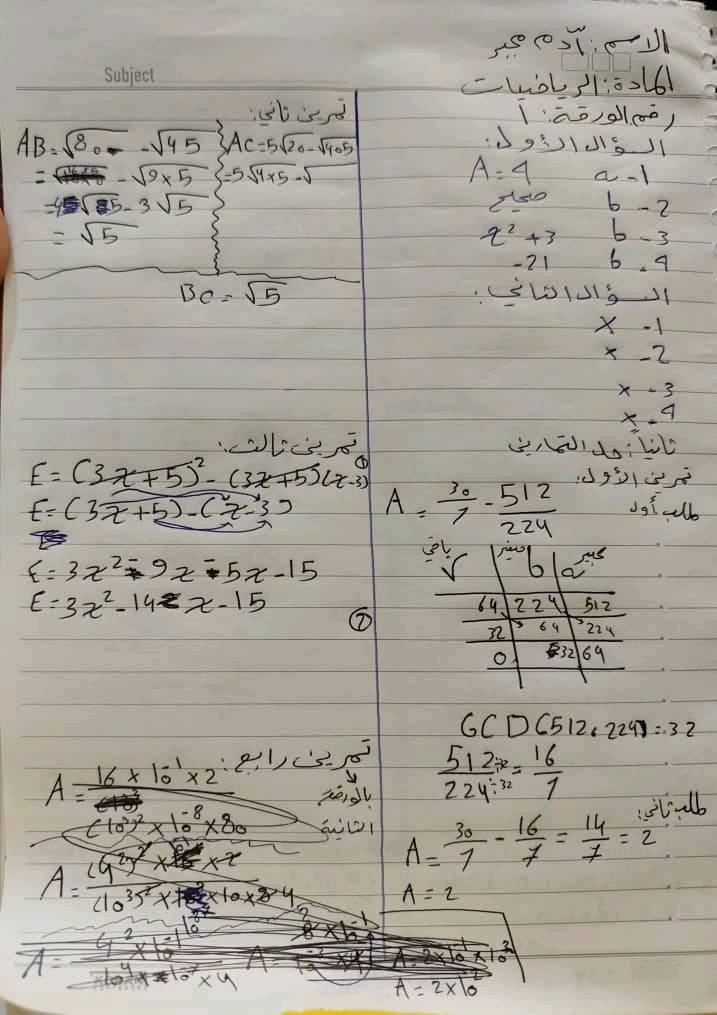 Subject
الاسم: آدم مجبر
المادة: الرياضيات
رقم الورقة: 1
السؤال الأول:
1- a A=4
2- b صحيح
3- b x² + 3
4- b -21
السؤال الثاني:
1- x
2- x
3- x
4- x
ثانياً: حل التمارين
تمرين الأول:
طلب أول
A = 30/7 - 512/224
كبير a | صغير b | باقي r
512 | 224 | 64
224 | 64 | 32
64 | 32 | 0
GCD(512, 224) = 32
512÷32/224÷32 = 16/7
طلب ثاني:
A = 30/7 - 16/7 = 14/7 = 2
A = 2
تمرين ثاني:
AB = √80 - √45
- √9×5
√5 - 3√5
= √5
AC = 5√20 - √405
= 5√4×5 - √
BC = √5
تمرين ثالث:
①
E = (3x+5)² - (3x+5)(x-3)
E = (3x+5) - (x-3)
E = 3x² - 9x - 5x - 15
E = 3x² - 14x - 15
②
تمرين رابع:
بالورقة
الثانية
A = 16 × 10⁻¹ × 2
(10³)² × 10⁻⁸ × 80
A = 2×10⁻¹×10²